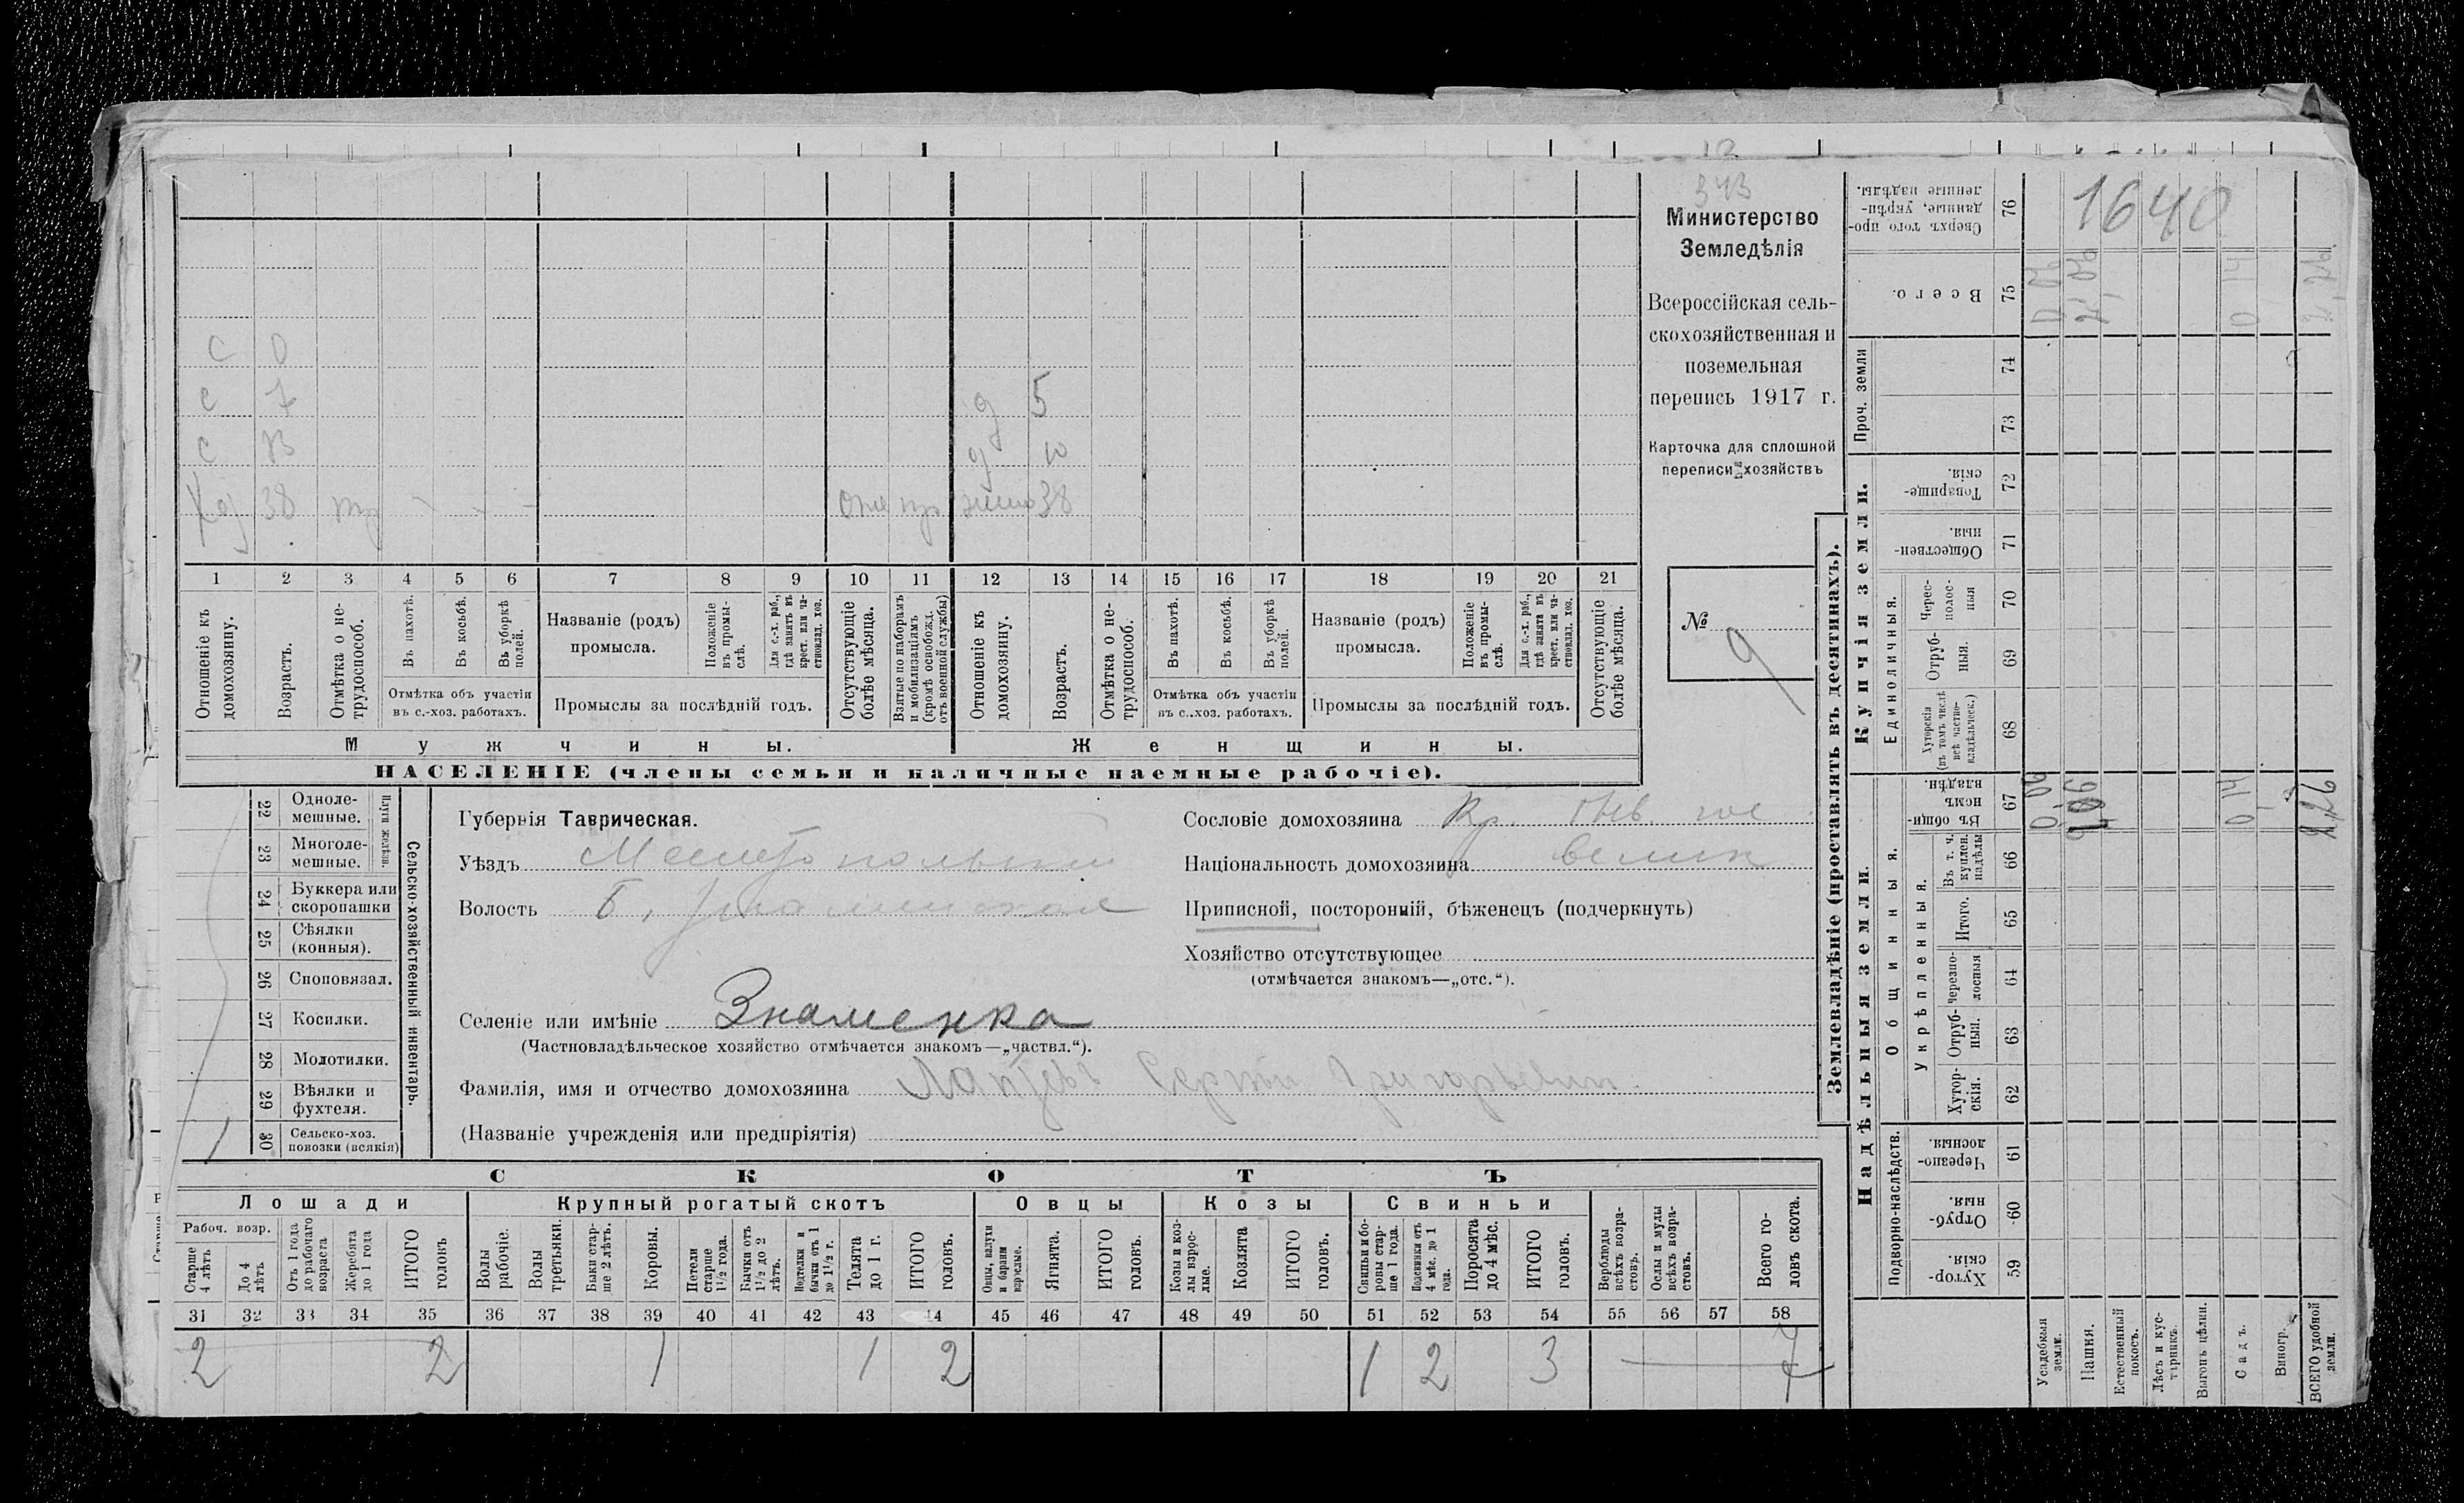 343
Министерство
Земледѣлія
Всероссійская сель-
скохозяйственная и
поземельная
перепись 1917 г.
Карточка для сплошной
переписи хозяйствъ
№ 9
1640
С 0
С 7 д 5
С 13 д 10
Хоз 38 жена 38
1 2 3 4 5 6 7 8 9 10 11 12 13 14 15 16 17 18 19 20 21
Отношеніе къ домохозяину.
Возрастъ.
Отмѣтка о не-трудоспособ.
Въ пахотѣ.
Въ косьбѣ.
Въ уборкѣ полей.
Отмѣтка объ участіи въ с.-хоз. работахъ.
Названіе (родъ) промысла.
Положеніе въ промы-слѣ.
Для с.-х. раб., гдѣ занятъ въ крест. или ча-стновлад. хоз.
Промыслы за послѣдній годъ.
Отсутствующіе болѣе мѣсяца.
Взятые по наборамъ и мобилизаціямъ (кромѣ освобожд. отъ военной службы)
Отношеніе къ домохозяину.
Возрастъ.
Отмѣтка о не-трудоспособ.
Въ пахотѣ.
Въ косьбѣ.
Въ уборкѣ полей.
Отмѣтка объ участіи въ с.-хоз. работахъ.
Названіе (родъ) промысла.
Положеніе въ промы-слѣ.
Для с.-х. раб., гдѣ заняти въ крест. или ча-стновлад. хоз.
Промыслы за послѣдній годъ.
Отсутствующіе болѣе мѣсяца.
Мужчины. Женщины.
НАСЕЛЕНІЕ (члены семьи и наличные наемные рабочіе).
22 Одноле-мешные.
23 Многоле-мешные.
Плуги желѣзн.
24 Буккера или скоропашки
25 Сѣялки (конныя).
26 Сноповязал.
27 Косилки.
28 Молотилки.
29 Вѣялки и фухтеля.
30 Сельско-хоз. повозки (всякія) 1
Сельско-хозяйственный инвентарь.
Губернія Таврическая.
Уѣздъ Мелитопольскій
Волость Б. Знаменская
Селеніе или имѣніе Знаменка
(Частновладѣльческое хозяйство отмѣчается знакомъ—„частвл.“).
Фамилія, имя и отчество домохозяина Лаптевъ Сергѣй Григорьевич
(Названіе учрежденія или предпріятія)
Сословіе домохозяина Кр.
Національность домохозяина велик
Приписной, посторонній, бѣженецъ (подчеркнуть)
Хозяйство отсутствующее
(отмѣчается знакомъ—„отс.“).
СКОТЪ
Лошади Крупный рогатый скотъ Овцы Козы Свиньи
Рабоч. возр.
Старше 4 лѣтъ
До 4 лѣтъ
Отъ 1 года до рабочаго возраста
Жеребята до 1 года
ИТОГО головъ
Волы рабочіе.
Волы третьяки.
Быки стар-ше 2 лѣтъ.
Коровы.
Нетели старше 1½ года.
Бычки отъ 1½ до 2 лѣтъ.
Подтелки и бычки отъ 1 до 1½ г.
Телята до 1 г.
ИТОГО головъ.
Овцы, валухи и бараны взрослые.
Ягнята.
ИТОГО головъ.
Козы и коз-лы взрос-лые.
Козлята
ИТОГО головъ.
Свиньи и бо-ровы стар-ше 1 года.
Подсвинки отъ 4 мѣс. до 1 года.
Поросята до 4 мѣс.
ИТОГО головъ.
Верблюды всѣхъ возра-стовъ.
Ослы и мулы всѣхъ возра-стовъ.
Всего го-ловъ скота.
31 32 33 34 35 36 37 38 39 40 41 42 43 44 45 46 47 48 49 50 51 52 53 54 55 56 57 58
2 2 1 1 2 1 2 3 7
Землевладѣніе (проставлять въ десятинахъ).
Надѣльныя земли.
Купчія земли.
Проч. земли
Подворно-наслѣдств.
Общинныя.
Укрѣпленныя.
Единоличныя.
Хутор-скія. 59
Отруб-ныя. 60
Черезпо-лосныя. 61
Хутор-скія. 62
Отруб-ныя. 63
Черезпо-лосныя 64
Итого. 65
Въ т. ч. куплен. надѣлы 66
Въ общин-номъ владѣн. 67
Хуторскія (въ томъ числѣ всѣ частно-владѣльческ.) 68
Отруб-ныя. 69
Черес-полос-ныя 70
Обществен-ныя. 71
Товарище-скія. 72
73
74
Всего. 75
Сверхъ того про-данные, укрѣп-ленные надѣлы. 76
Усадебная земля.
Пашня.
Естественный покосъ.
Лѣсъ и кус-тарникъ.
Выгонъ цѣлин.
Садъ.
Виногр.
ВСЕГО удобной земли.